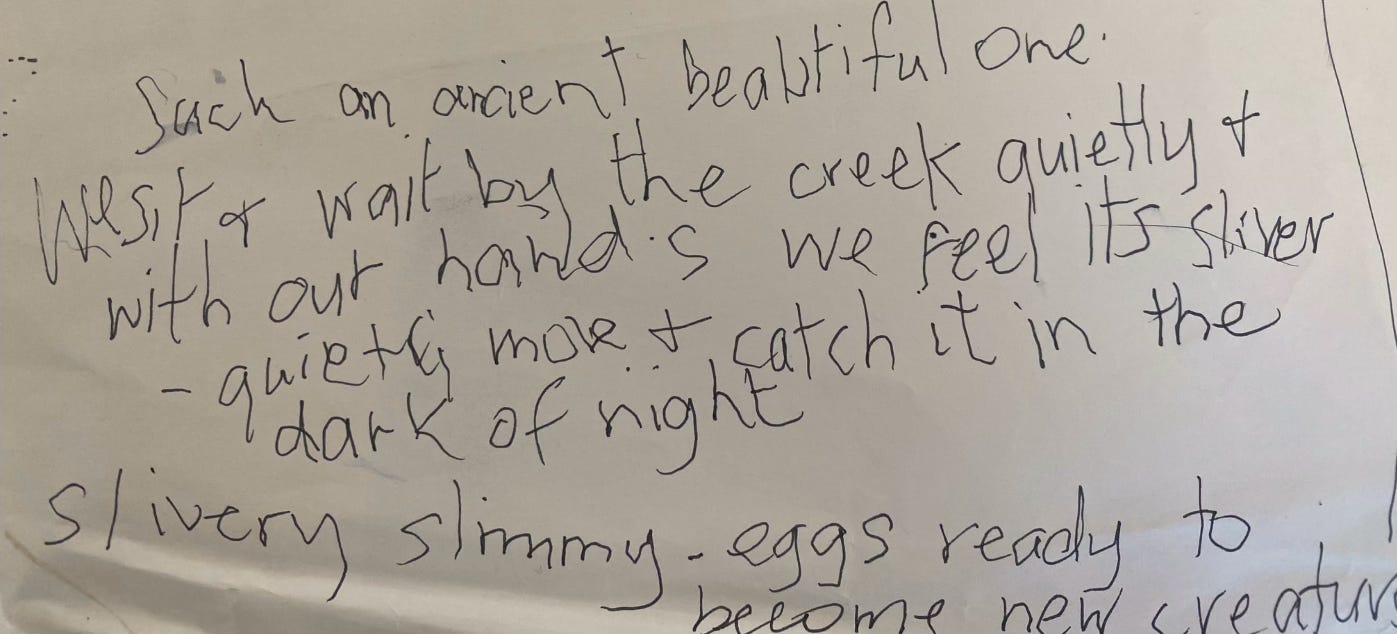 Such an ancient beautiful one.
We sit & wait by the creek quietly &
with our hands we feel its sliver
- quietly move & catch it in the
dark of night
slivery slimmy - eggs ready to
become new creatur